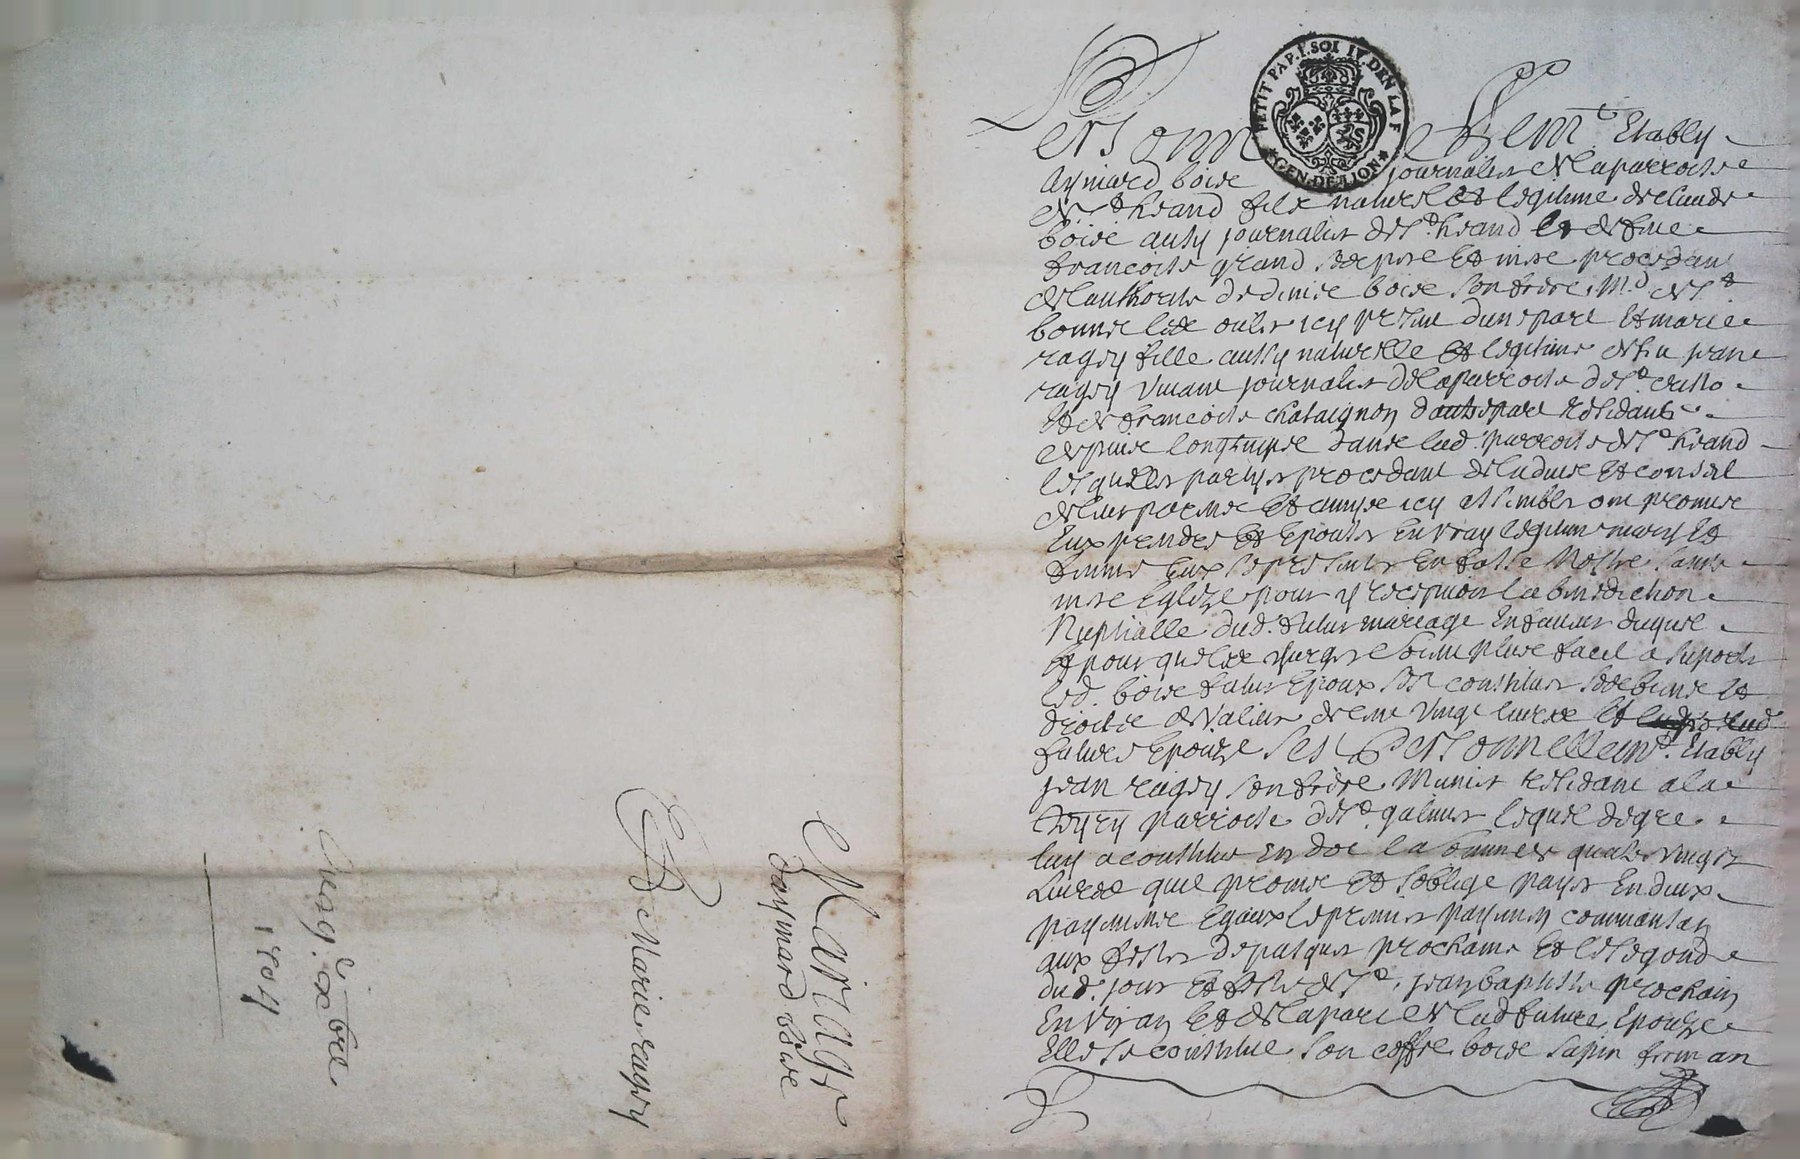 PETIT PAP. I. SOL IV. DEN LA F
GEN. DE LION
Personnellemt. Establÿ
Aÿmard boise journalier de la parroisse
de St heand filz naturel et legitime de claude
boise ausÿ journalier de St. heand et de feue
francoise grand ses pere et mere procedent
de lauthorite de denise boise son frere md de St
bonnet les oules icÿ presene dune pare et marie
ragey fille aussÿ naturelle et legitime de feu jean
ragey vivant journalier de la parroisse de St. cristo
et de francoise chataignon dautre pare residante
depuis longtemps dans lad parroisse de St heand
lesquelles parties procedant de ladvise et conseil
de leurs parens et amys icÿ assembles ont promis
eux prendre et epouser en vraÿ legitime marÿ et
femme eux se presenter en fasse nostre sainte
mere eglize pour ÿ recepvoir la benediction
Nuptialle dud. futur mariage en faveur duquel
et pour que les charges soient plus facil a suporter
led. boise futur epoux sest constitue ses biens et
droits de valeur de cent vingt livres et
future epouze sest Personnellemt. Establÿ
jean ragey son frere munier residant a la
parroisse de St. galmier lequel de gre
luÿ a constitue en dot la somme de quatre vingts
livres quil promet et soblige payer en deux
payemens egaux le premier payement commansan
aux festes de pasques prochaine et le segond
dud. jour et feste de St. jean baptiste prochain
en un an et de la part de lad future epouze
elle se constitue son coffre bois sapin ferman
Mariage
daymard boise
Et Marie ragey
du 29e. xbre
1704